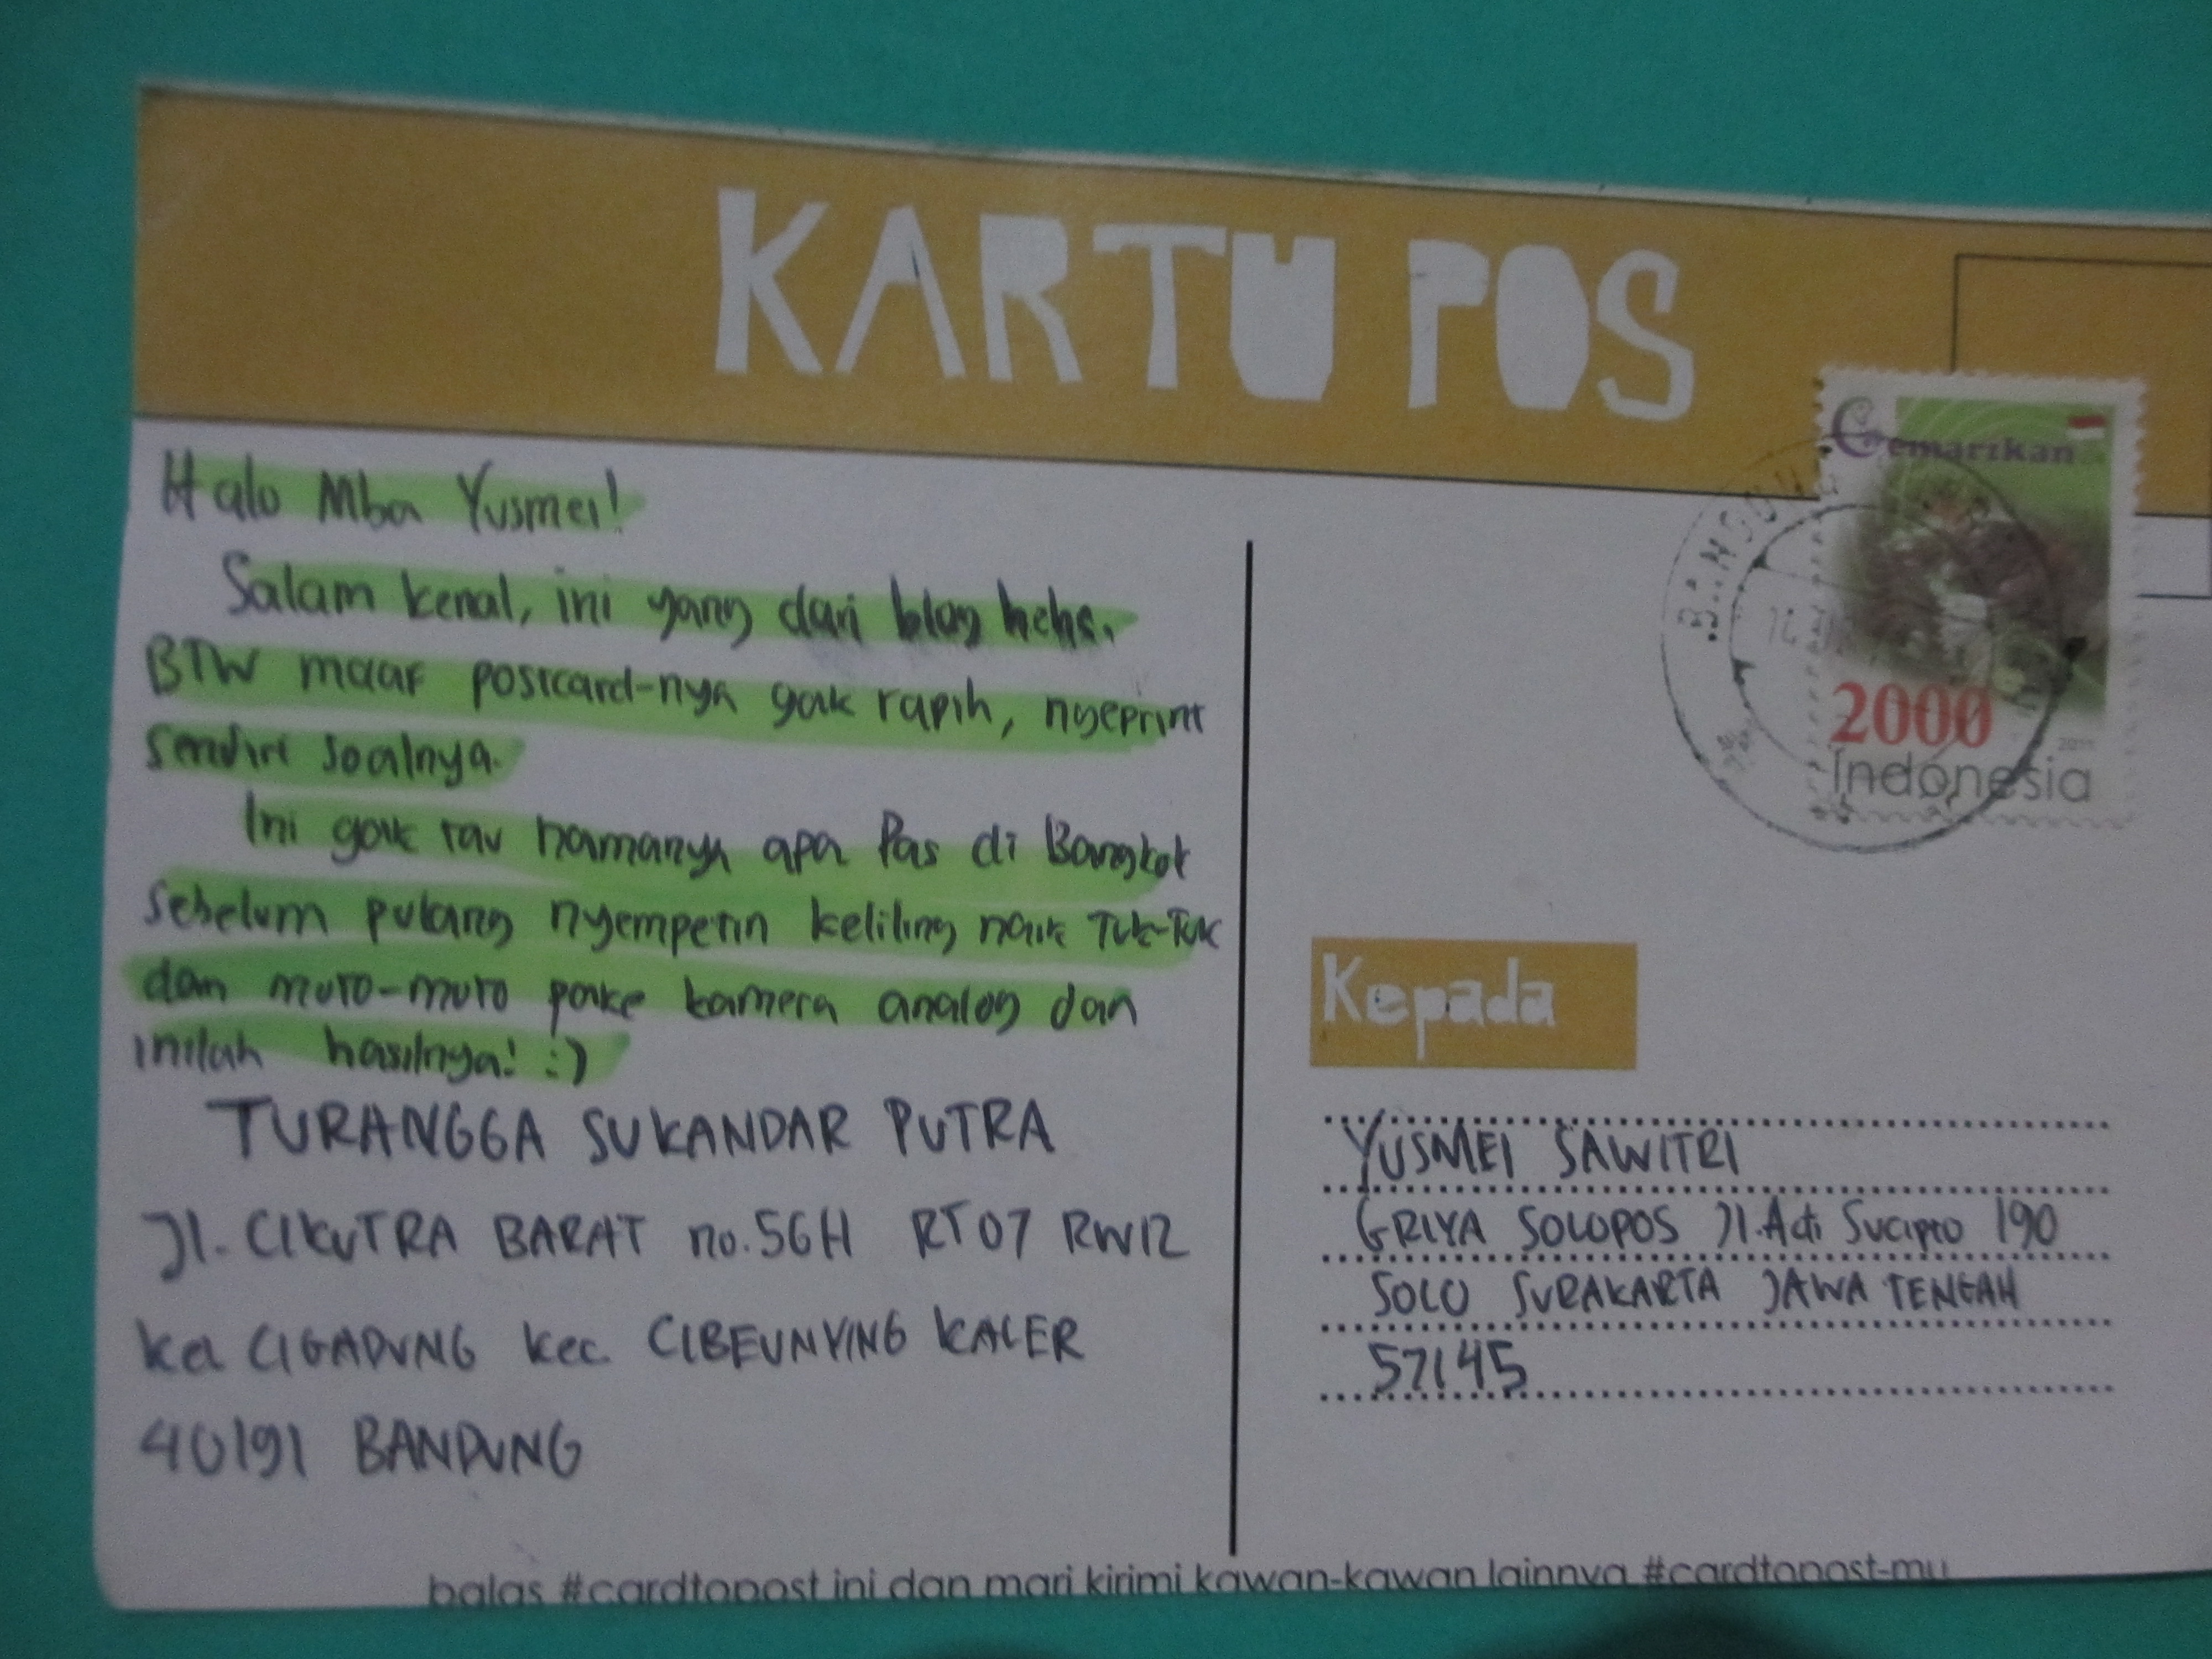 KARTU POS
Halo Mba Yusmei!
Salam kenal, ini yang dari blog hehe.
BTW maaf postcard-nya gak rapih, ngeprint
sendiri soalnya.
Ini gak tau namanya apa Pas di Bangkok
sebelum pulang nyempetin keliling naik Tuk-Tuk
dan moto-moto pake kamera analog dan
inilah hasilnya! :)
TURANGGA SUKANDAR PUTRA
Jl. CIKUTRA BARAT no. 56H RT07 RW12
kel CIGADUNG kec. CIBEUNYING KALER
40191 BANDUNG
Gemarikan
2000
2011
Indonesia
Kepada
YUSMEI SAWITRI
GRIYA SOLOPOS Jl. Adi Sucipto 190
SOLO SURAKARTA JAWA TENGAH
57145
balas #cardtopost ini dan mari kirimi kawan-kawan lainnya #cardtopost-mu